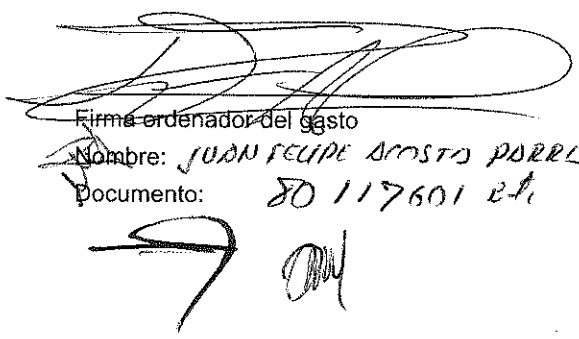 Firma ordenador del gasto
Nombre: JUAN FELIPE ACOSTA PARRA
Documento: 80 117601